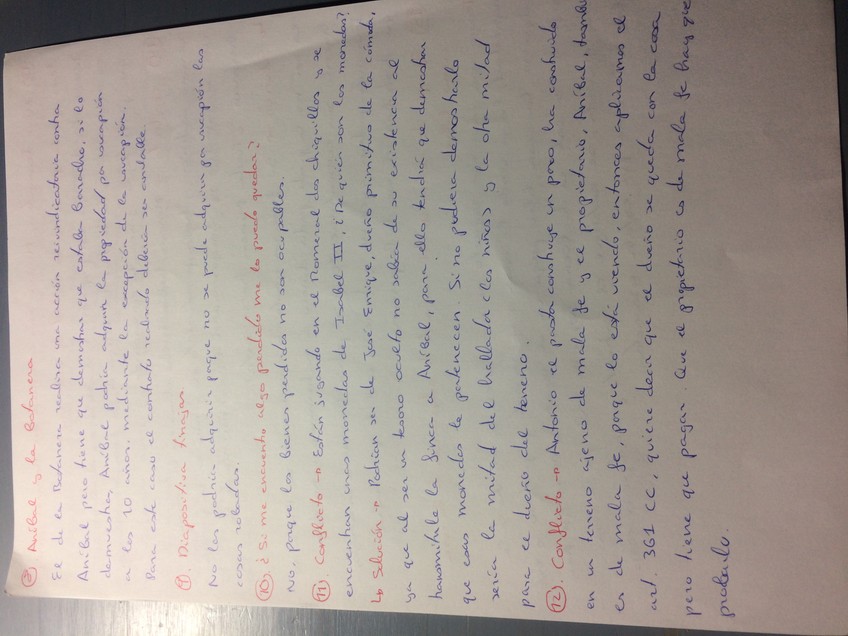 ⑧ Aníbal y la Batanera
El de la Batanera realiza una acción reivindicatoria contra
Aníbal pero tiene que demostrar que estaba Borracho, si lo
demuestra, Aníbal podría adquirir la propiedad por usucapión
a los 10 años. mediante la excepción de la usucapión.
Para este caso el contrato realizado debería ser anulable.
⑨. Diapositiva tinajas
No las podría adquirir porque no se puede adquirir por usucapión las
cosas robadas.
⑩. ¿Si me encuentro algo perdido me lo puedo quedar?
No, porque los bienes perdidos no son ocupables.
⑪. Conflicto → Están jugando en el Romeral dos chiquillos y se
encuentran unas monedas de Isabel II, ¿De quién son las monedas?
↳ Solución → Podrían ser de José Enrique, dueño primitivo de la cómoda,
ya que al ser un tesoro oculto no sabía de su existencia al
transmitirle la finca a Aníbal, para ello tendrá que demostrar
que esas monedas le pertenecen. Si no pudiera demostrarlo
sería la mitad del hallador (los niños) y la otra mitad
para el dueño del terreno.
⑫. Conflicto → Antonio el pastor construye un pozo, ha construido
en un terreno ajeno de mala fe y el propietario, Aníbal,
es de mala fe, porque lo está viendo, entonces aplicamos el
art. 361 CC, quiere decir que el dueño se queda con la cosa
pero tiene que pagar. Que el propietario es de mala fe hay que
probarlo.